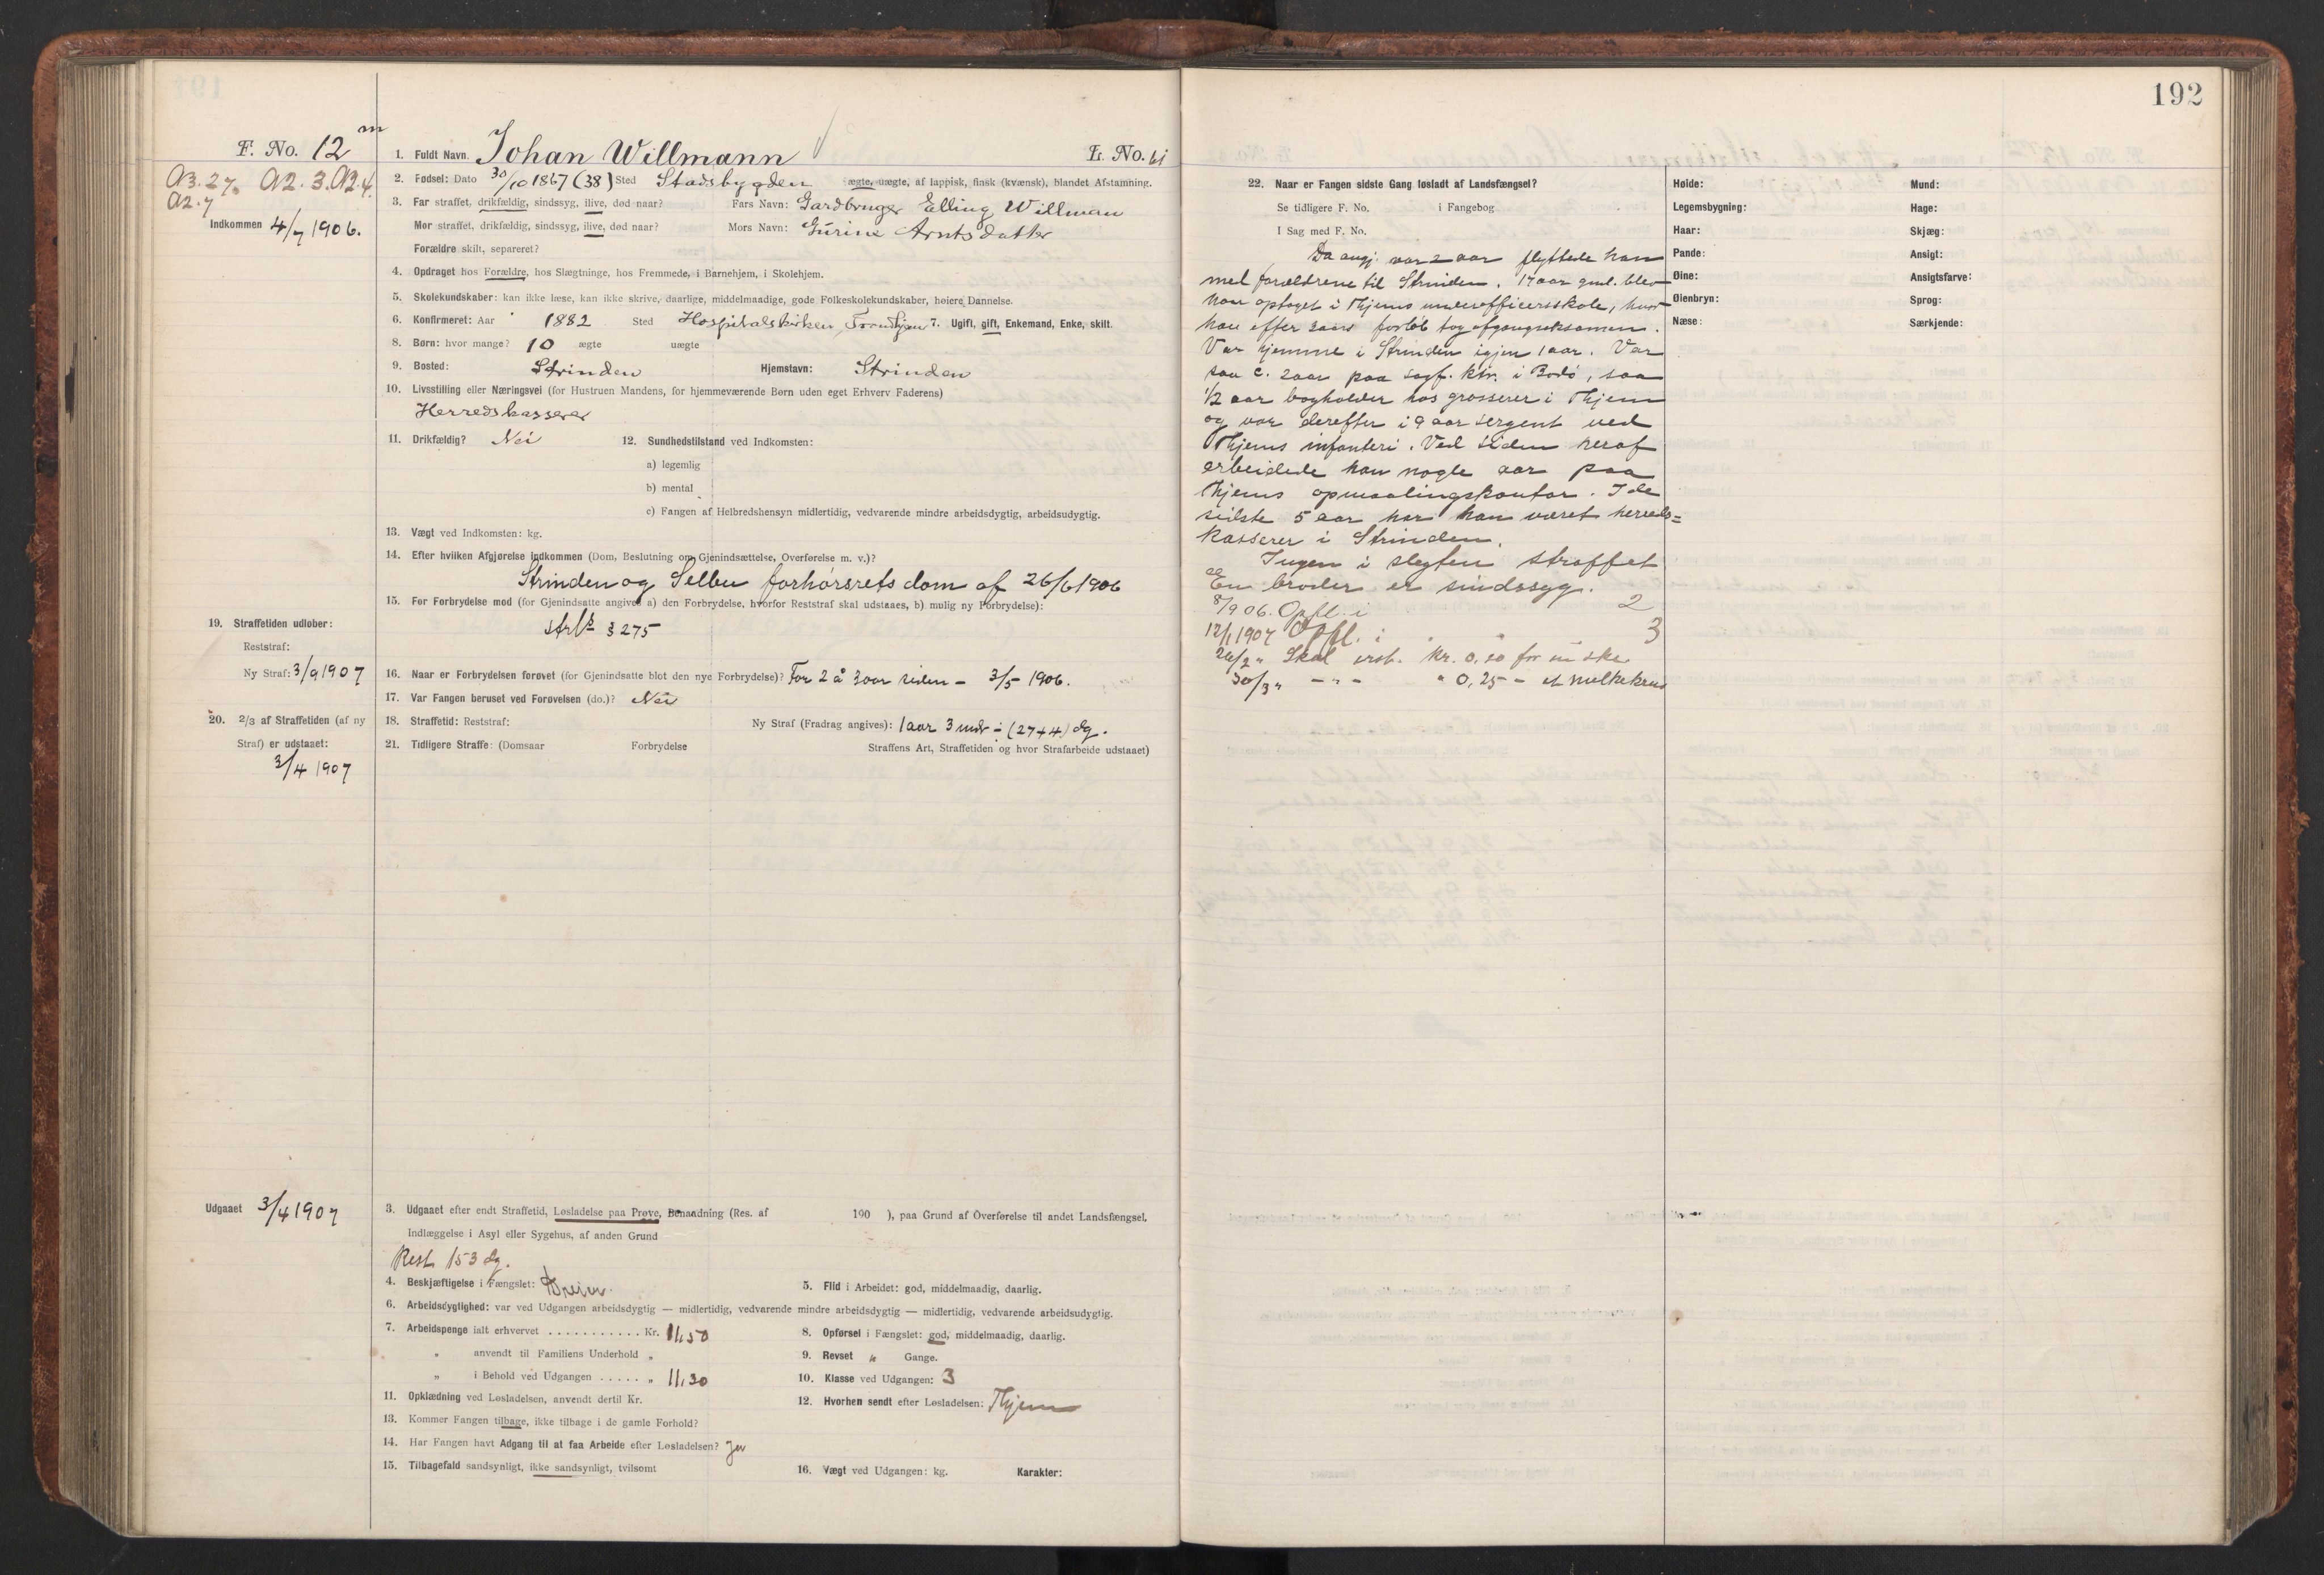 192
F. No. 12 m
1. Fuldt Navn. Johan Willmann
L. No. 61
A3. 27. A2. 3. A2. 4.
A2. 7
2. Fødsel: Dato 30/10 1867 (38) Sted Stadsbygden ægte, uægte, af lappisk, finsk (kvænsk), blandet Afstamning.
Indkommen 4/7 1906.
3. Far straffet, drikfældig, sindssyg, ilive, død naar? Fars Navn: Gardbruger Elling Willman
Mor straffet, drikfældig, sindssyg, ilive, død naar? Mors Navn: Gurine Arntsdatter
Forældre skilt, separeret?
4. Opdraget hos Forældre, hos Slægtninge, hos Fremmede, i Barnehjem, i Skolehjem.
5. Skolekundskaber: kan ikke læse, kan ikke skrive, daarlige, middelmaadige, gode Folkeskolekundskaber, høiere Dannelse.
6. Konfirmeret: Aar 1882 Sted Hospitalskirken, Trondhjem 7. Ugift, gift, Enkemand, Enke, skilt.
8. Børn: hvor mange? 10 ægte uægte
9. Bosted: Strinden Hjemstavn: Strinden
10. Livsstilling eller Næringsvei (for Hustruen Mandens, for hjemmeværende Børn uden eget Erhverv Faderens)
Herredskasserer
11. Drikfældig? Nei 12. Sundhedstilstand ved Indkomsten:
a) legemlig
b) mental
c) Fangen af Helbredshensyn midlertidig, vedvarende mindre arbeidsdygtig, arbeidsudygtig.
13. Vægt ved Indkomsten: kg.
14. Efter hvilken Afgjørelse indkommen (Dom, Beslutning om Gjenindsættelse, Overførelse m. v.)?
Strinden og Selbu forhørsrets dom af 26/6 1906
15. For Forbrydelse mod (for Gjenindsatte angives a) den Forbrydelse, hvorfor Reststraf skal udstaaes, b) mulig ny Forbrydelse):
strfl § 275
19. Straffetiden udløber:
Reststraf:
Ny Straf: 3/9 1907
16. Naar er Forbrydelsen forøvet (for Gjenindsatte blot den nye Forbrydelse)? For 2 à 3 aar siden – 3/5 1906.
17. Var Fangen beruset ved Forøvelsen (do.)? Nei
20. 2/3 af Straffetiden (af ny
Straf) er udstaaet:
3/4 1907
18. Straffetid: Reststraf: Ny Straf (Fradrag angives): 1 aar 3 mdr ÷ (27+4) dg.
21. Tidligere Straffe: (Domsaar Forbrydelse Straffens Art, Straffetiden og hvor Strafarbeide udstaaet)
Udgaaet 3/4 1907
3. Udgaaet efter endt Straffetid, Løsladelse paa Prøve, Benaadning (Res. af 190 ), paa Grund af Overførelse til andet Landsfængsel.
Indlæggelse i Asyl eller Sygehus, af anden Grund
Rest 153 dg.
4. Beskjæftigelse i Fængslet:
5. Flid i Arbeidet: god, middelmaadig, daarlig.
6. Arbeidsdygtighed: var ved Udgangen arbeidsdygtig — midlertidig, vedvarende mindre arbeidsdygtig — midlertidig, vedvarende arbeidsudygtig.
7. Arbeidspenge ialt erhvervet . . . . . . . . . . . Kr. 11,50
8. Opførsel i Fængslet: god, middelmaadig, daarlig.
„ anvendt til Familiens Underhold „
9. Revset „ Gange.
„ i Behold ved Udgangen . . . . . „ 11,30
10. Klasse ved Udgangen: 3
11. Opklædning ved Løsladelsen, anvendt dertil Kr.
12. Hvorhen sendt efter Løsladelsen: Thjem
13. Kommer Fangen tilbage, ikke tilbage i de gamle Forhold?
14. Har Fangen havt Adgang til at faa Arbeide efter Løsladelsen? Ja
15. Tilbagefald sandsynligt, ikke sandsynligt, tvilsomt
16. Vægt ved Udgangen: kg. Karakter:
22. Naar er Fangen sidste Gang løsladt af Landsfængsel?
Se tidligere F. No. i Fangebog
I Sag med F. No.
Da angj. var 2 aar flyttede han
med forældrene til Strinden. 17 aar gml. blev
han optaget i Thjems underofficersskole, hvor
han efter 3 aars forløb tog afgangseksamen.
Var hjemme i Strinden igjen 1 aar. Var
saa c. 2 aar paa sagf. ktr. i Bodø, saa
1/2 aar bogholder hos grosserer i Thjem
og var derefter i 9 aar sergent ved
Thjems infanteri. Ved siden heraf
arbeidede han nogle aar paa
Thjems opmaalingskontor. I de
sidste 5 aar har han været herreds=
kasserer i Strinden.
Ingen i slegten straffet
En broder er sindssyg.
8/9 06. Opfl. i 2
12/1 1907 Opfl. i " " 3
26/2 " Skal erst. Kr. 0.20 for en ske
30/3 " – " – " 0,25 – et melkekrus
Høide: Mund:
Legemsbygning: Hage:
Haar: Skjæg:
Pande: Ansigt:
Øine: Ansigtsfarve:
Øienbryn: Sprog:
Næse: Særkjende: